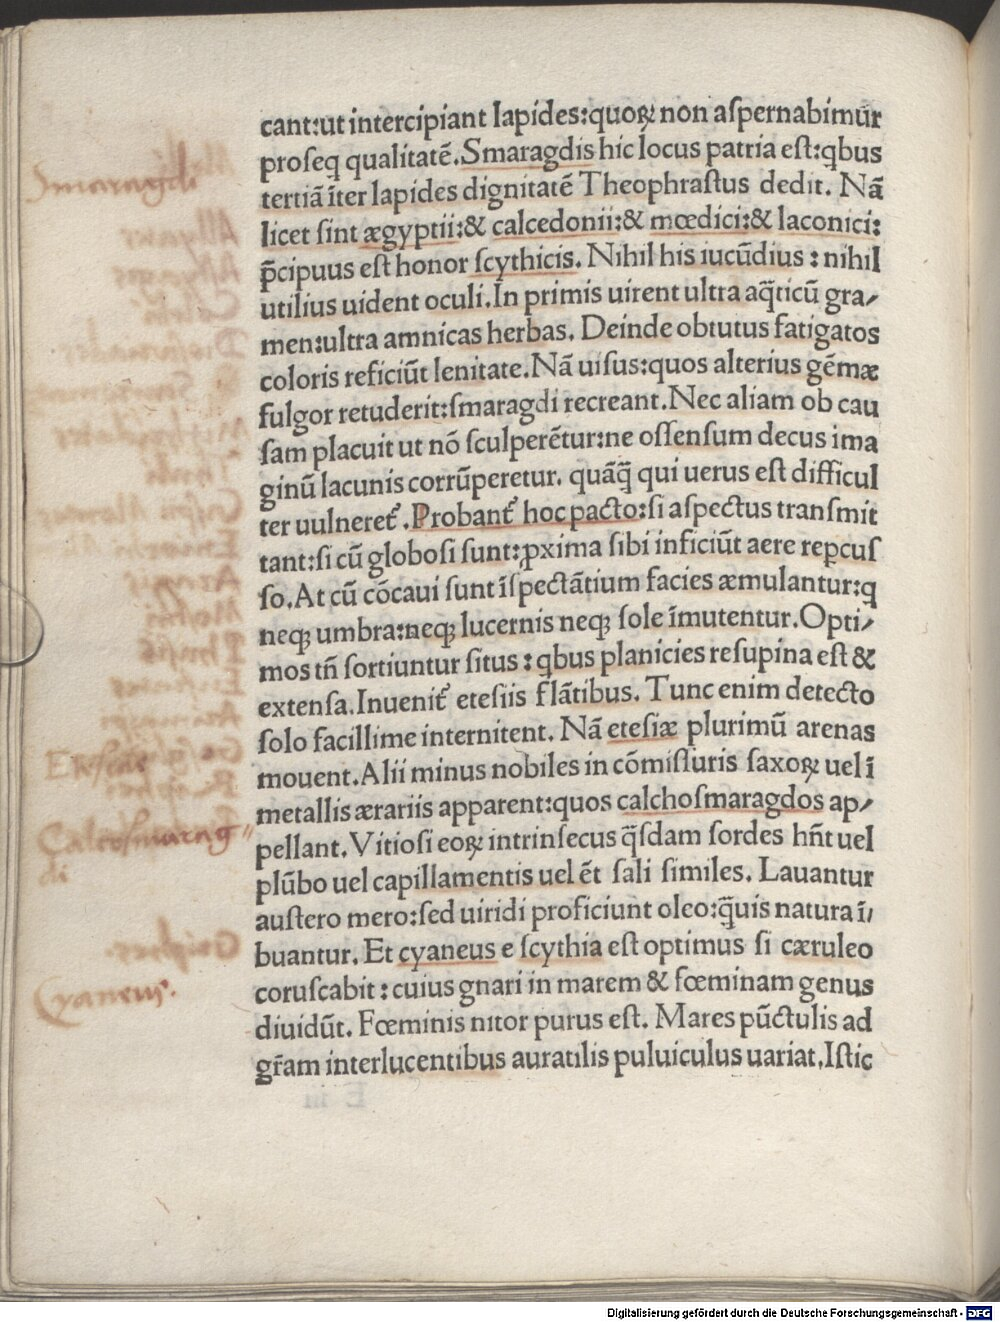 cant:ut intercipiant lapides:quoꝝ non aſpernabimũr
proſeq qualitatẽ.Smaragdis hic locus patria eſt:qbus
tertiã ĩter lapides dignitatẽ Theophraſtus dedit. Nã
licet ſint ægyptii:& calcedonii:& mœdici:& laconici:
p̃cipuus eſt honor ſcythicis. Nihil his iucũdius : nihil
utilius uident oculi.In primis uirent ultra aq̃ticũ gra⸗
men:ultra amnicas herbas. Deinde obtutus fatigatos
coloris reficiũt lenitate.Nã uiſus:quos alterius gẽmæ
fulgor retuderit:ſmaragdi recreant.Nec aliam ob cau
ſam placuit ut nõ ſculperẽtur:ne offenſum decus ima
ginũ lacunis corrũperetur. quãq̃ qui uerus eſt difficul
ter uulneret᷑.Probant᷑ hoc pacto:ſi aſpectus tranſmit
tant:ſi cũ globoſi ſunt:ꝓxima ſibi inficiũt aere reꝑcuſ
ſo.At cũ cõcaui ſunt ĩſpectãtium facies æmulantur:q
neqꝫ umbra:neqꝫ lucernis neqꝫ ſole ĩmutentur.Opti⸗
mos tñ ſortiuntur ſitus : qbus planicies reſupina eſt &
extenſa.Inuenit᷑ eteſiis flãtibus. Tunc enim detecto
ſolo facillime internitent. Nã eteſiæ plurimũ arenas
mouent.Alii minus nobiles in cõmiſſuris ſaxoꝝ uel ĩ
metallis ærariis apparent:quos calchoſmaragdos ap⸗
pellant.Vitioſi eoꝝ intrinſecus q̃ſdam ſordes hñt uel
plũbo uel capillamentis uel ẽt ſali ſimiles. Lauantur
auſtero mero:ſed uiridi proficiunt oleo:q̃uis natura ĩ⸗
buantur. Et cyaneus e ſcythia eſt optimus ſi cæruleo
coruſcabit : cuius gnari in marem & fœminam genus
diuidũt. Fœminis nitor purus eſt. Mares pũctulis ad
gr̃am interlucentibus auratilis puluiculus uariat.Iſtic
Smaragdi
Eteſiae
Calcoſmarag〃
di
Cyaneus.
Digitalisierung gefördert durch die Deutsche Forschungsgemeinschaft - DFG